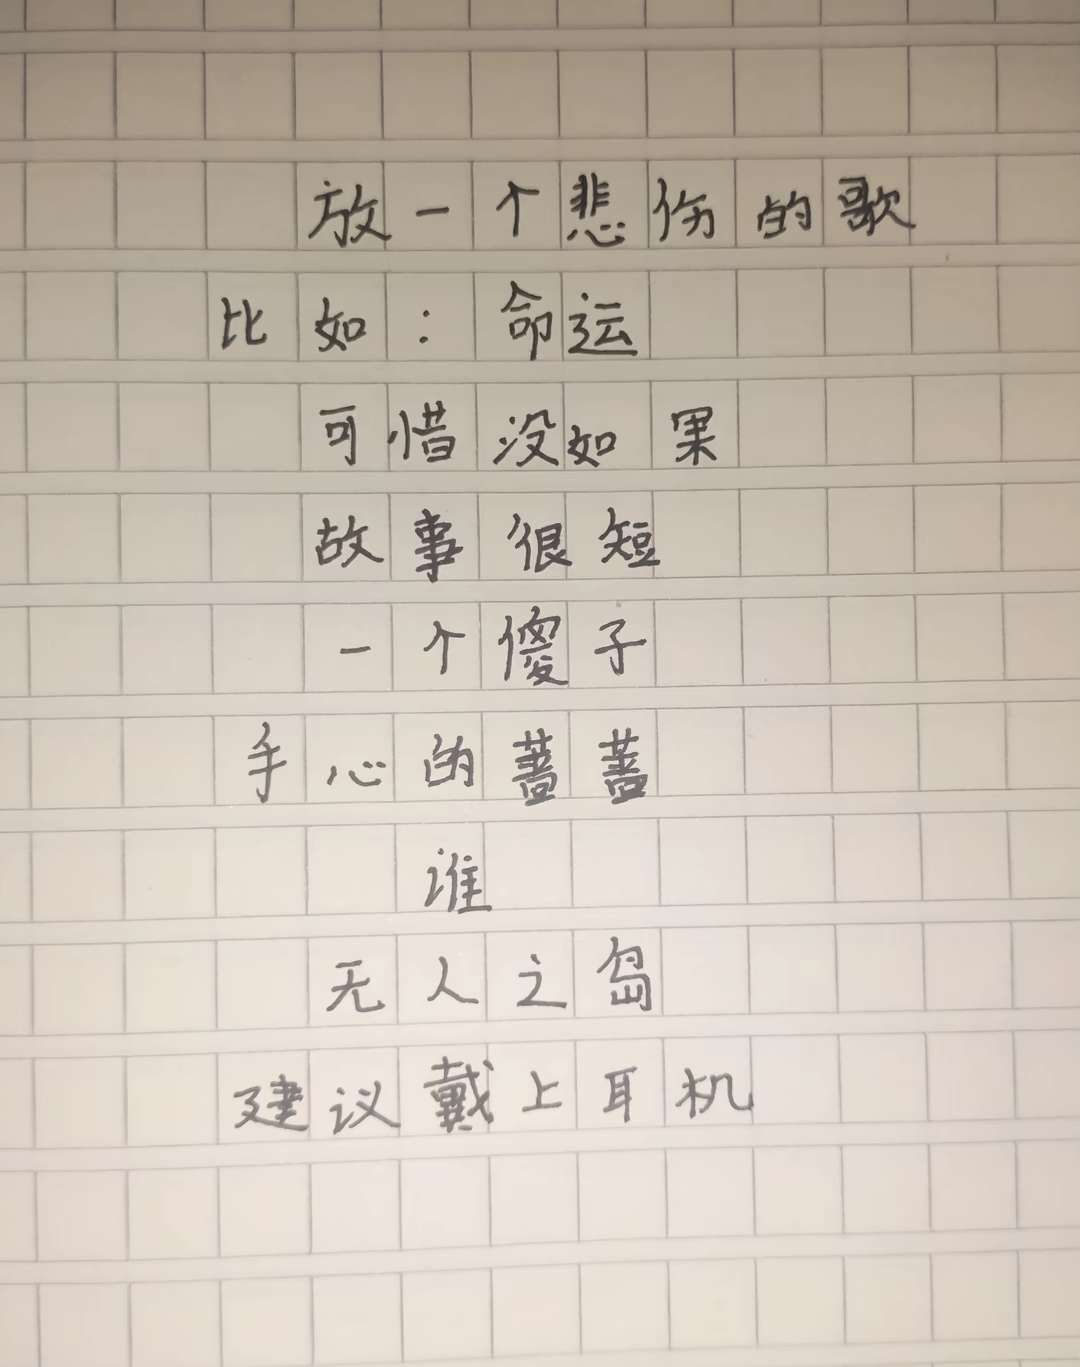 放一个悲伤的歌
比如：命运
可惜没如果
故事很短
一个傻子
手心的蔷蔷
谁
无人之岛
建议戴上耳机